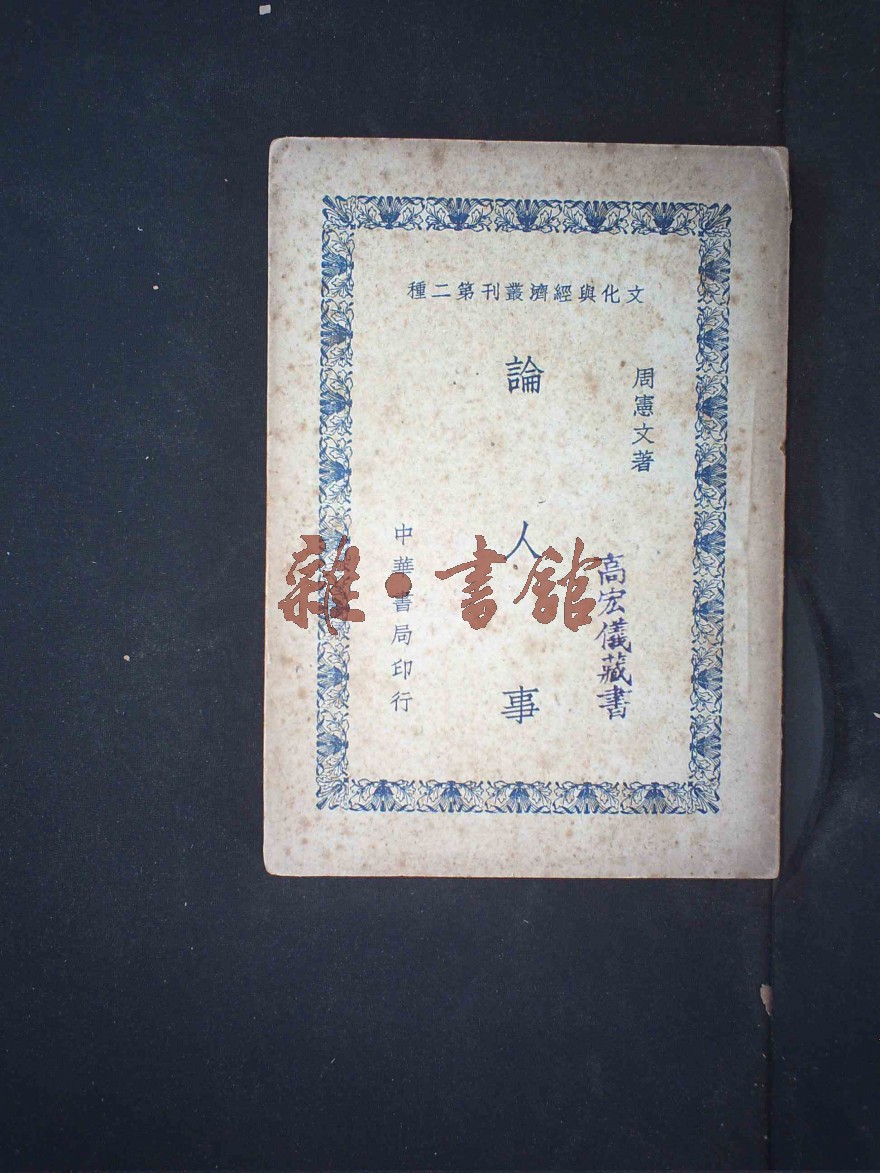 文化與經濟叢刊第二種
周憲文著
論人事
高宏儀藏書
中華書局印行
雜·書館